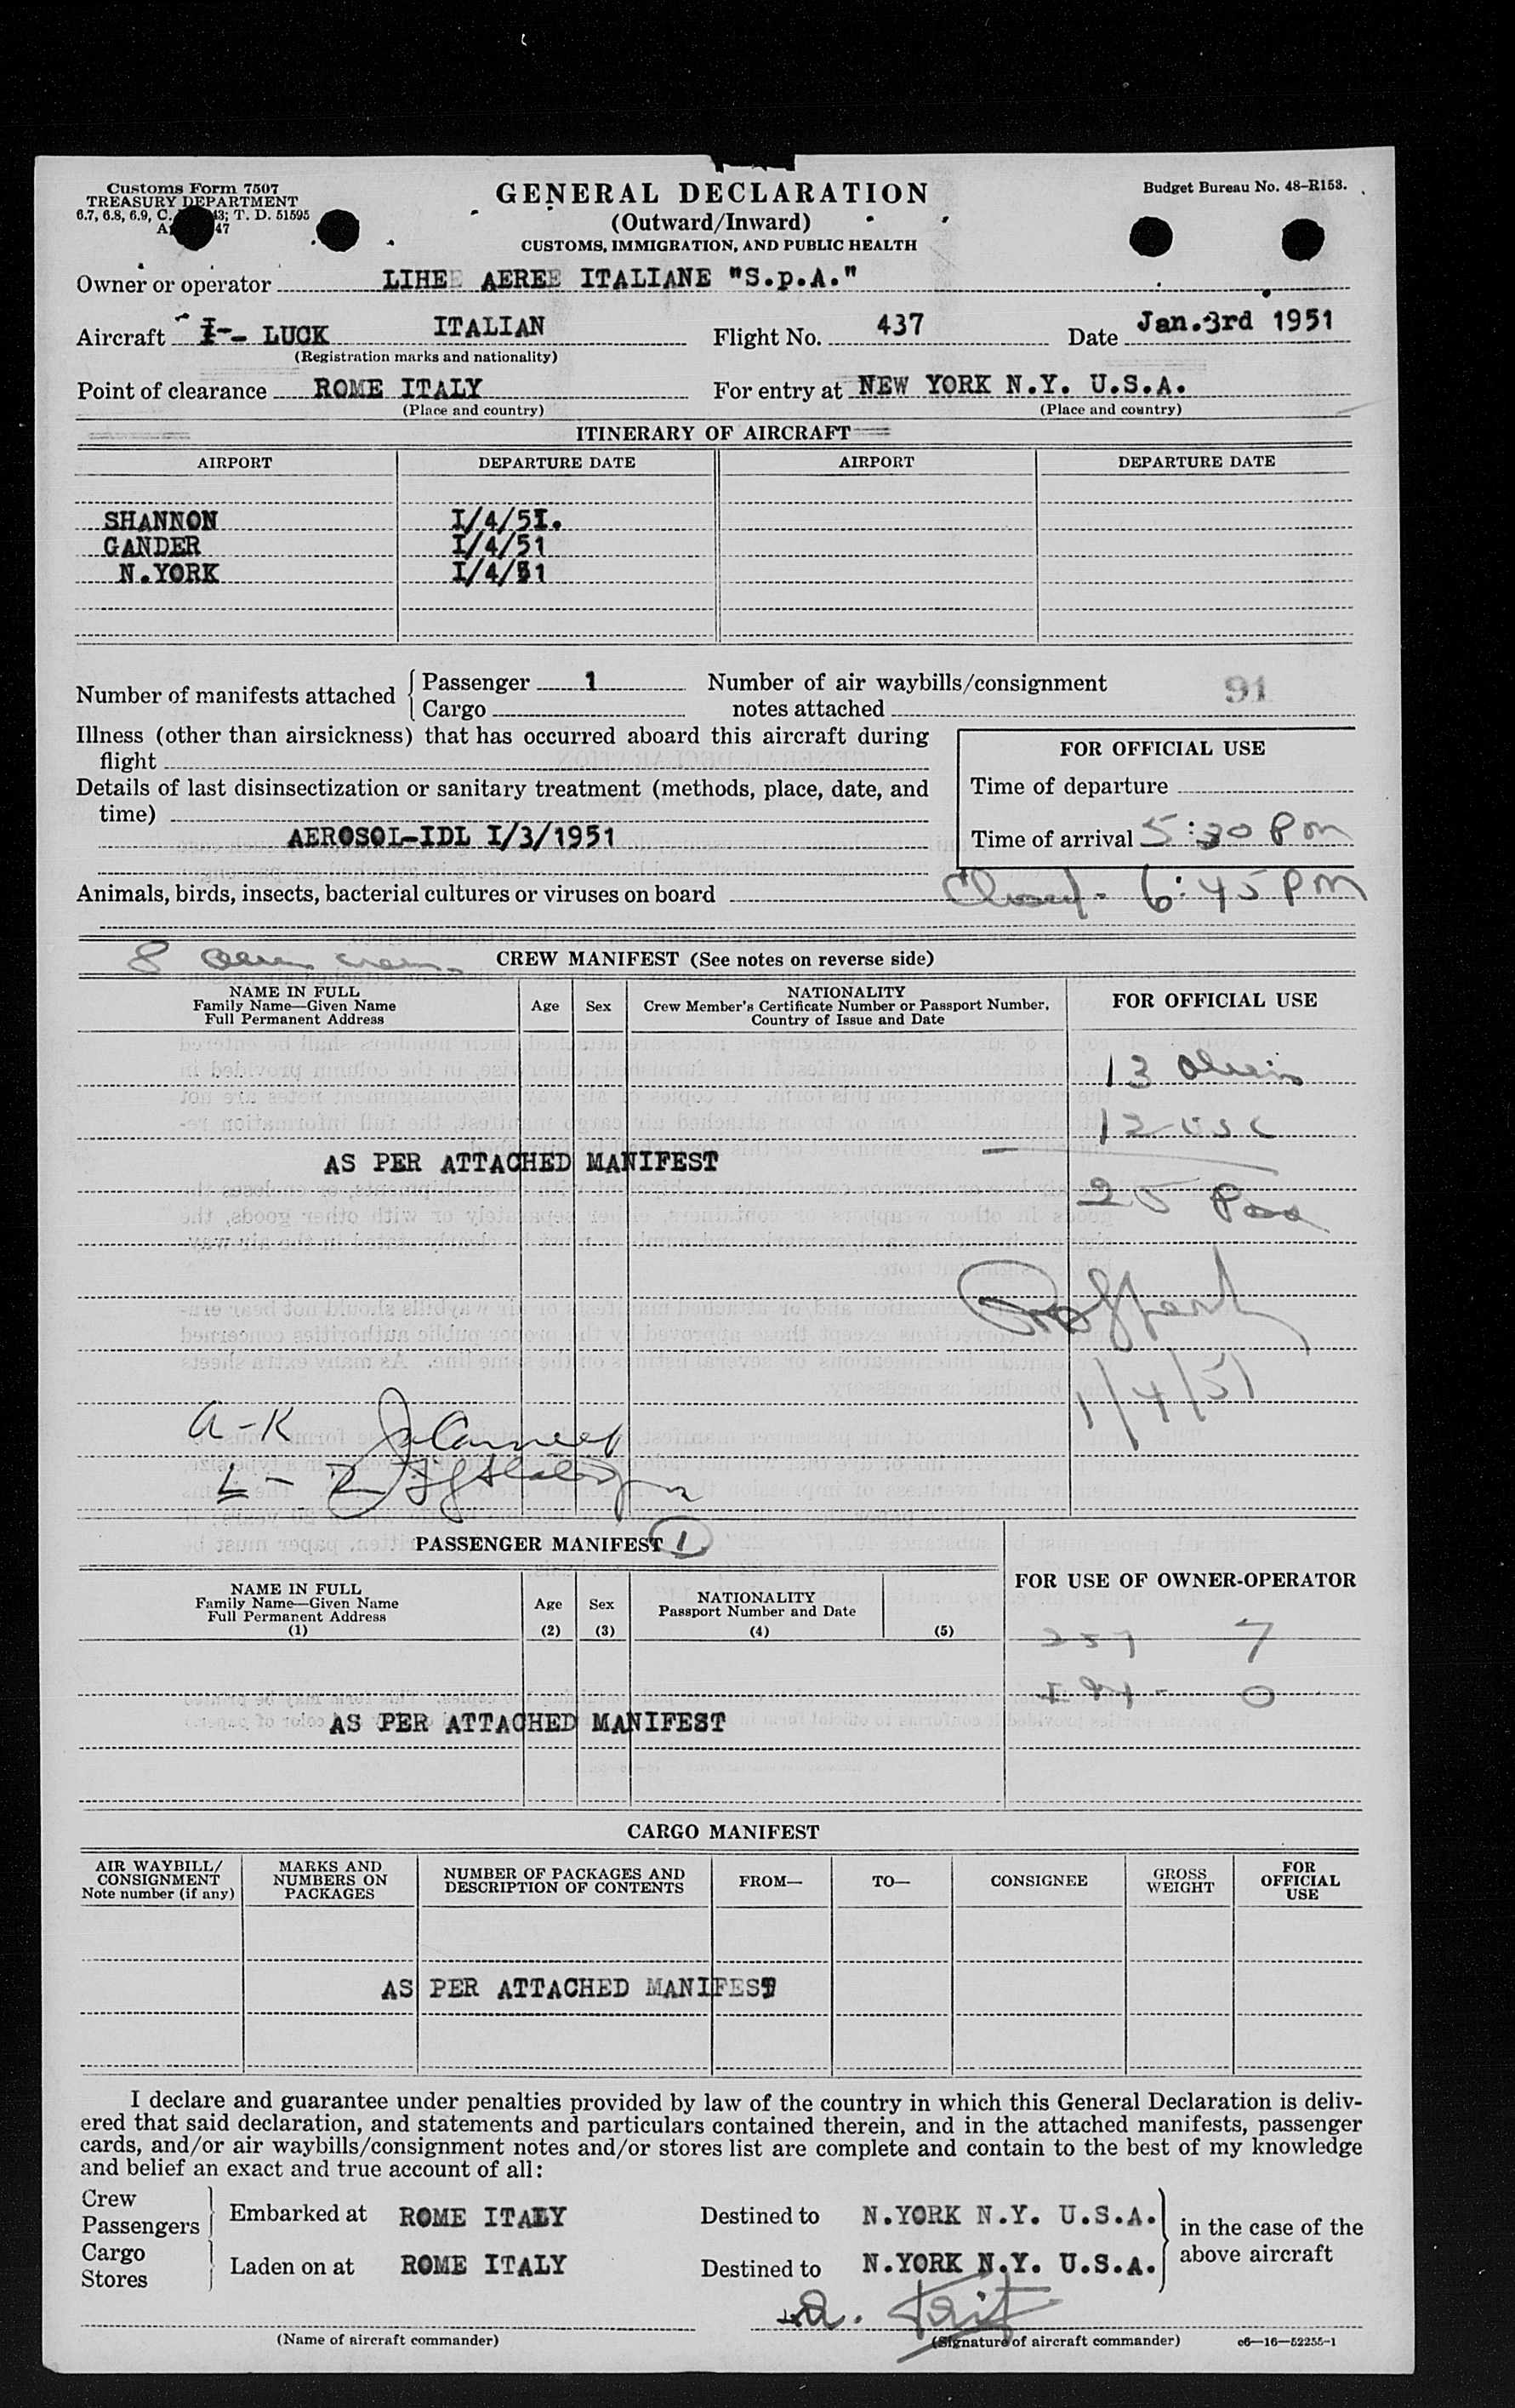 Customs Form 7507
TREASURY DEPARTMENT
6.7, 6.8, 6.9, C. 43; T. D. 51595
47
GENERAL DECLARATION
(Outward/Inward)
CUSTOMS, IMMIGRATION, AND PUBLIC HEALTH
Budget Bureau No. 48-R153.
Owner or operator LIHEE AEREE ITALIANE "S.p.A."
Aircraft I-- LUCK ITALIAN Flight No. 437 Date Jan.3rd 1951
(Registration marks and nationality)
Point of clearance ROME ITALY For entry at NEW YORK N.Y. U.S.A.
(Place and country) (Place and country)
ITINERARY OF AIRCRAFT
AIRPORT DEPARTURE DATE AIRPORT DEPARTURE DATE
SHANNON I/4/5I.
GANDER I/4/51
N.YORK I/4/51
Number of manifests attached Passenger 1 Number of air waybills/consignment 91
Cargo notes attached
Illness (other than airsickness) that has occurred aboard this aircraft during
flight
FOR OFFICIAL USE
Details of last disinsectization or sanitary treatment (methods, place, date, and
time)
Time of departure
AEROSOL-IDL I/3/1951
Time of arrival 5:30 Pm
Animals, birds, insects, bacterial cultures or viruses on board
Closed - 6:45 PM
8 crew
CREW MANIFEST (See notes on reverse side)
NAME IN FULL
Family Name—Given Name
Full Permanent Address
Age Sex
NATIONALITY
Crew Member's Certificate Number or Passport Number,
Country of Issue and Date
FOR OFFICIAL USE
13 Aliens
12 USC
AS PER ATTACHED MANIFEST
25 Pass
1/4/51
A-K
L - Z
PASSENGER MANIFEST 1
FOR USE OF OWNER-OPERATOR
NAME IN FULL
Family Name—Given Name
Full Permanent Address
(1)
Age
(2)
Sex
(3)
NATIONALITY
Passport Number and Date
(4) (5)
257 7
0
AS PER ATTACHED MANIFEST
CARGO MANIFEST
AIR WAYBILL/
CONSIGNMENT
Note number (if any)
MARKS AND
NUMBERS ON
PACKAGES
NUMBER OF PACKAGES AND
DESCRIPTION OF CONTENTS
FROM—
TO—
CONSIGNEE
GROSS
WEIGHT
FOR
OFFICIAL
USE
AS PER ATTACHED MANIFEST
I declare and guarantee under penalties provided by law of the country in which this General Declaration is deliv-
ered that said declaration, and statements and particulars contained therein, and in the attached manifests, passenger
cards, and/or air waybills/consignment notes and/or stores list are complete and contain to the best of my knowledge
and belief an exact and true account of all:
Crew
Passengers Embarked at ROME ITALY Destined to N.YORK N.Y. U.S.A.
in the case of the
above aircraft
Cargo
Stores Laden on at ROME ITALY Destined to N.YORK N.Y. U.S.A.
(Name of aircraft commander) (Signature of aircraft commander) c6—16—52255-1